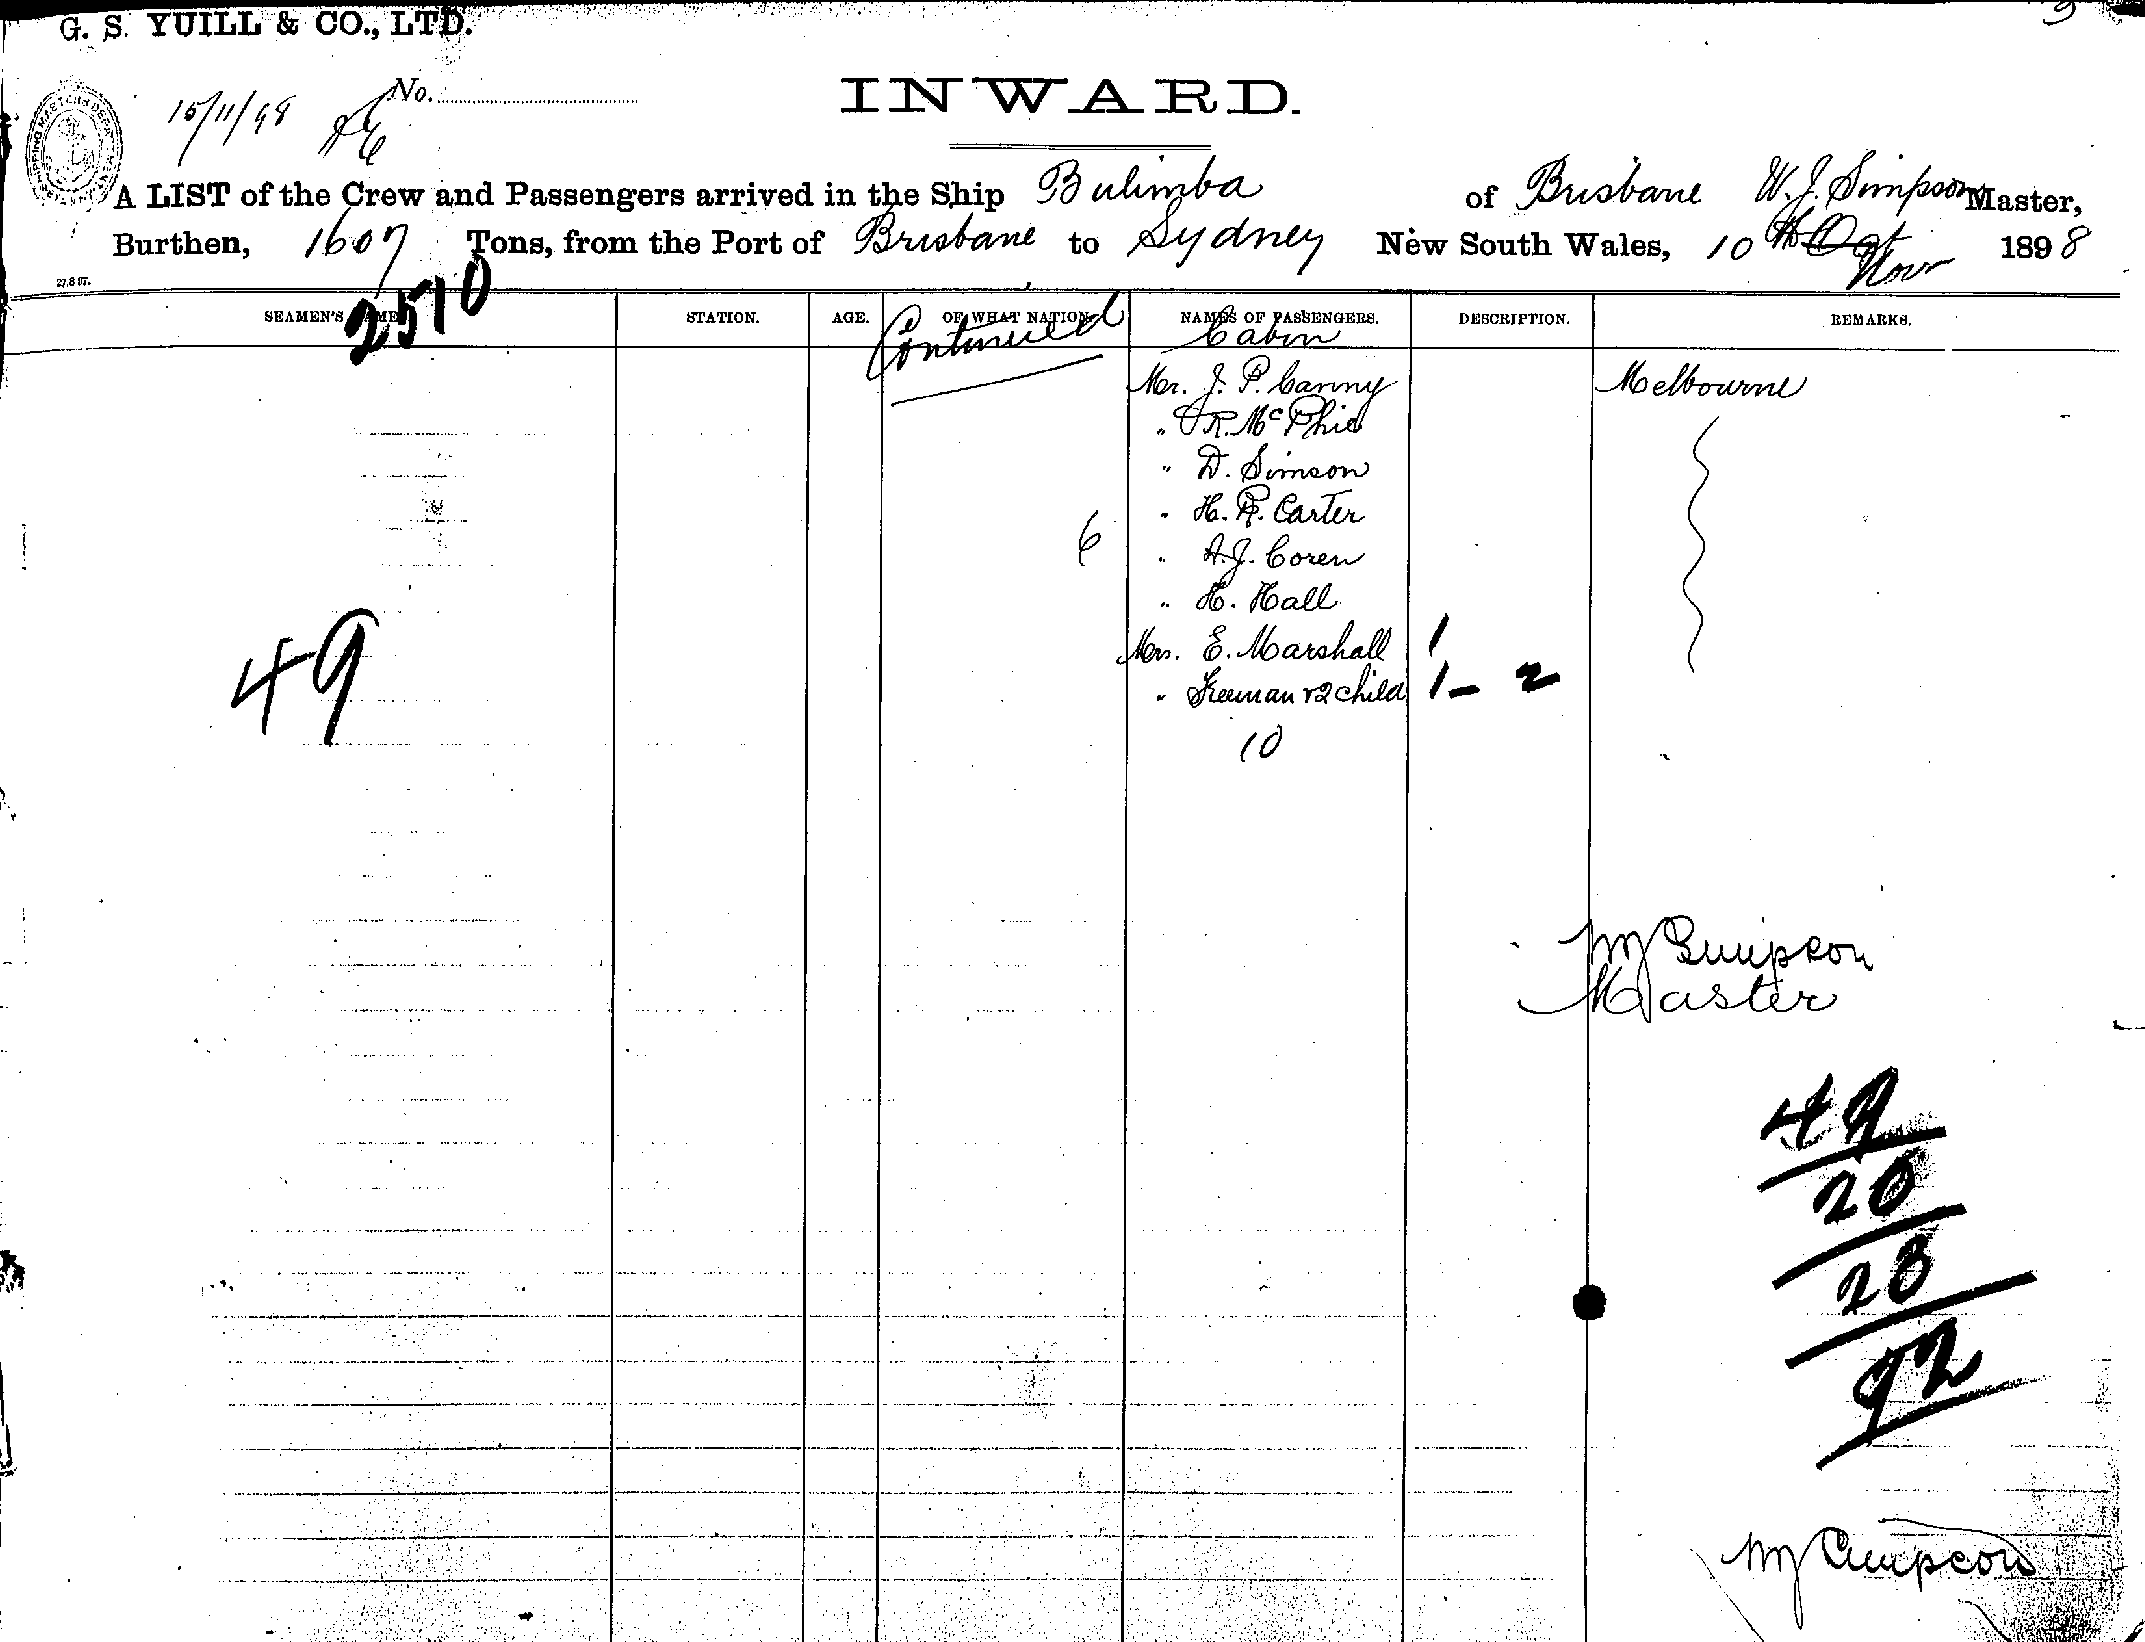 G. S. YUILL & CO., LTD.
15/11/98
No.
INWARD.
A LIST of the Crew and Passengers arrived in the Ship Bulimba of Brisbane W. J. Simpson Master,
Burthen, 1607 Tons, from the Port of Brisbane to Sydney New South Wales, 10 th Oct Novr 1898
27.8.97.
2510
SEAMEN'S NAMES STATION. AGE. OF WHAT NATION. NAMES OF PASSENGERS. DESCRIPTION. REMARKS.
Continued Cabin
Mr. J. P. Canny Melbourne
" R. McPhie
" D. Simson
" H. R. Carter
6 " A. J. Coren
" H. Hall
49 Mrs. E. Marshall 1
" Freeman & 2 child 1 - 2
10
WJ Simpson
Master
49
20
23
92
WJ Simpson